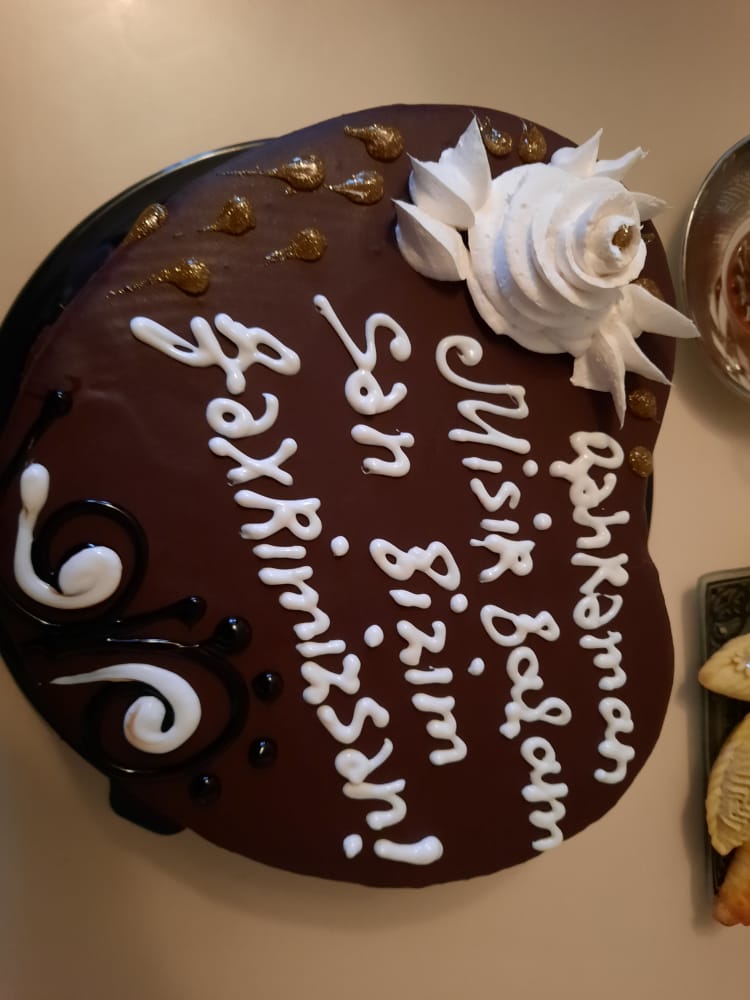 Qəhkəman
Misir Balam
Sən Bizim
Fəxrimizsən!